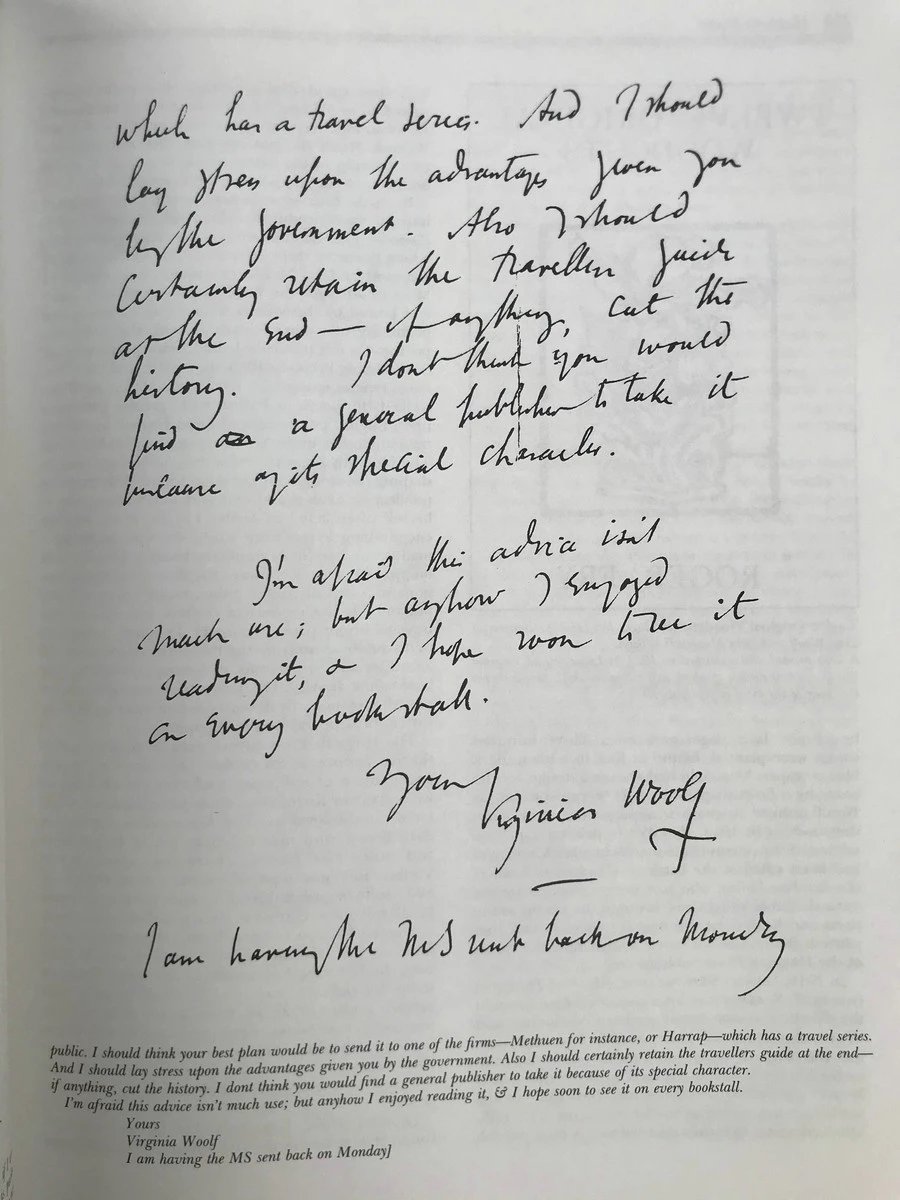 which has a travel series. And I should
lay stress upon the advantages given you
by the government. Also I should
certainly retain the travellers guide
at the end — if anything, cut the
history. I dont think you would
find a general publisher to take it
because of its special character.
I'm afraid this advice isn't
much use; but anyhow I enjoyed
reading it, & I hope soon to see it
on every bookstall.
Yours
Virginia Woolf
I am having the MS sent back on Monday
public. I should think your best plan would be to send it to one of the firms—Methuen for instance, or Harrap—which has a travel series.
And I should lay stress upon the advantages given you by the government. Also I should certainly retain the travellers guide at the end—
if anything, cut the history. I dont think you would find a general publisher to take it because of its special character.
I'm afraid this advice isn't much use; but anyhow I enjoyed reading it, & I hope soon to see it on every bookstall.
Yours
Virginia Woolf
I am having the MS sent back on Monday]